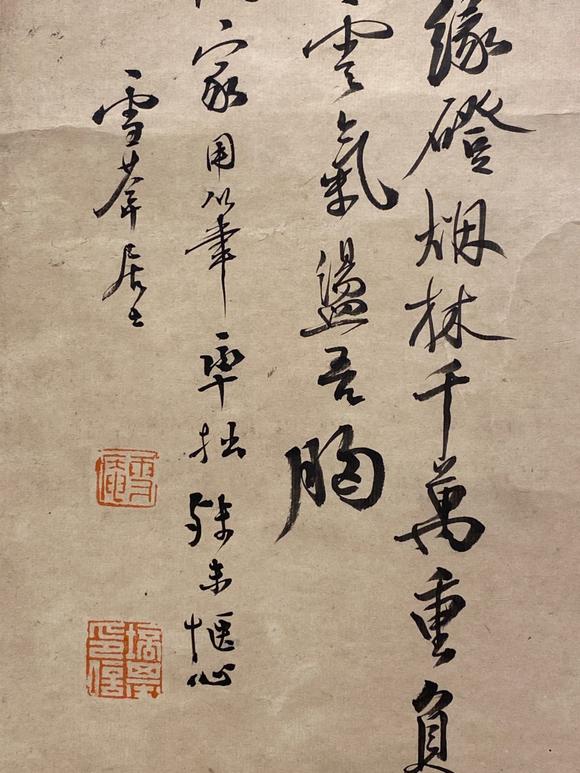 緣磴烟林千萬重負
雲氣盪吾胸
家用筆率拙殊未愜心
雪葊居士
雪庵
印信